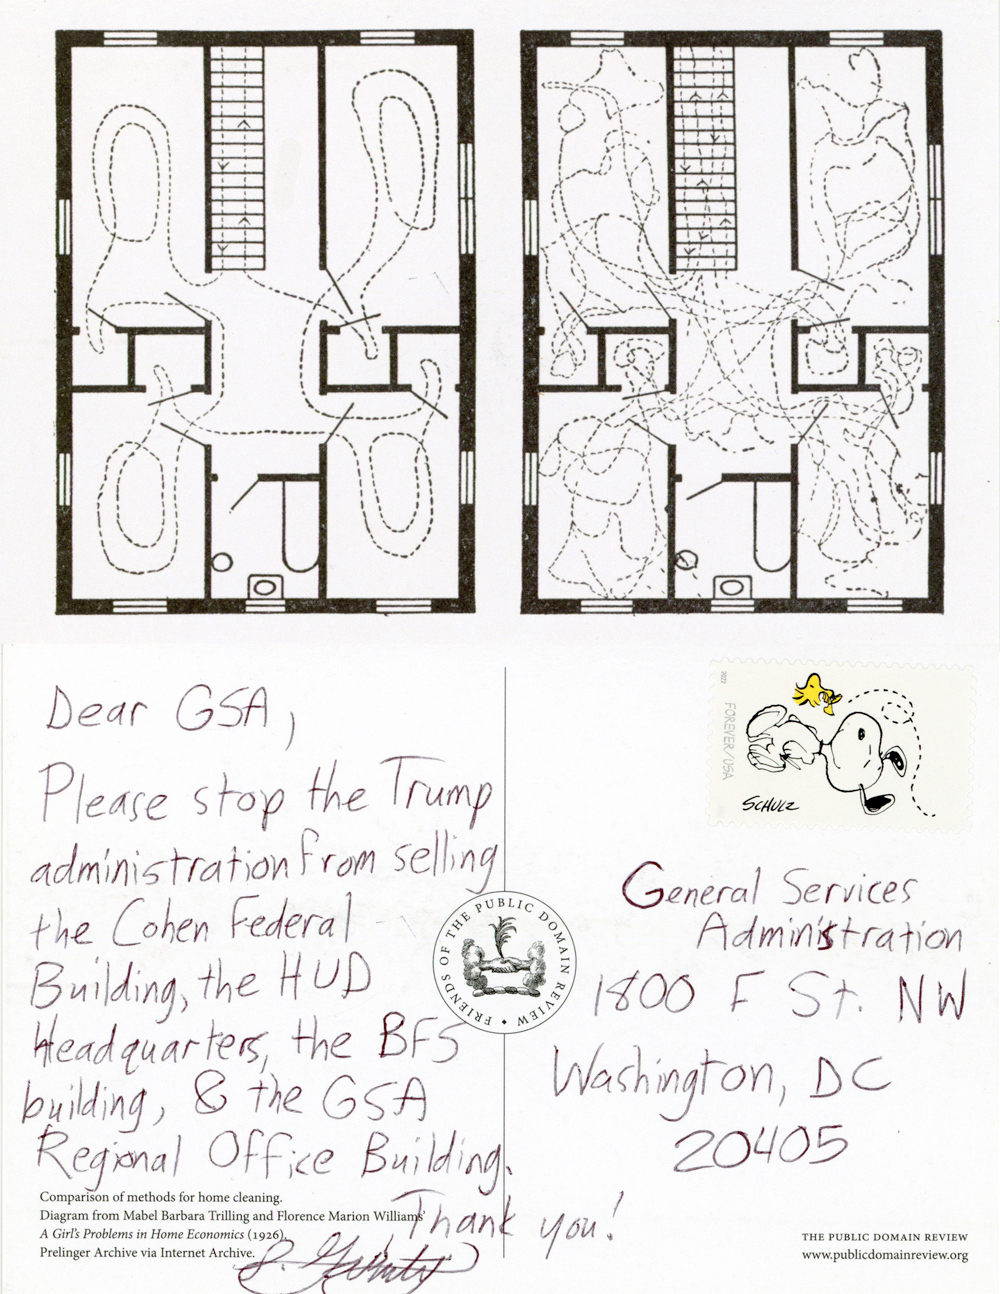 Dear GSA,
Please stop the Trump
administration from selling
the Cohen Federal
Building, the HUD
Headquarters, the BFS
building, & the GSA
Regional Office Building.
Thank you!
Comparison of methods for home cleaning.
Diagram from Mabel Barbara Trilling and Florence Marion Williams'
A Girl's Problems in Home Economics (1926).
Prelinger Archive via Internet Archive.
FRIENDS OF THE PUBLIC DOMAIN REVIEW
2022
FOREVER/USA
SCHULZ
General Services
Administration
1800 F St. NW
Washington, DC
20405
THE PUBLIC DOMAIN REVIEW
www.publicdomainreview.org